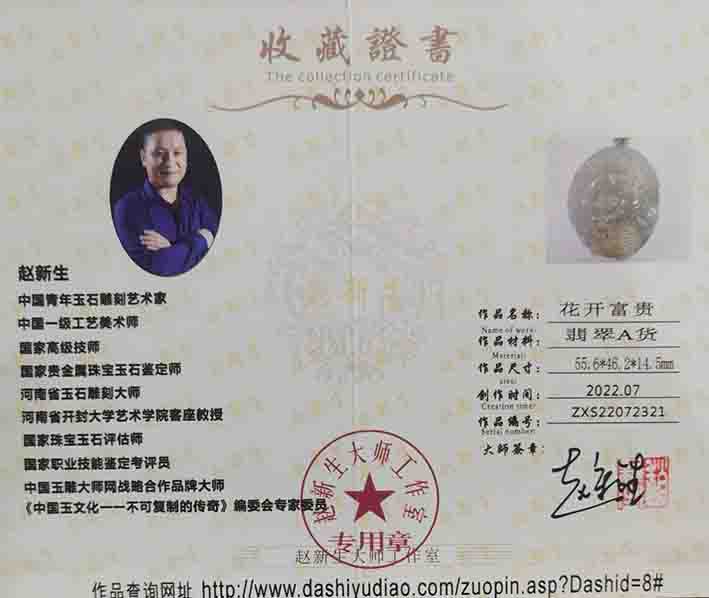 收藏證書
The collection certificate
赵新生
中国青年玉石雕刻艺术家
中国一级工艺美术师
国家高级技师
国家贵金属珠宝玉石鉴定师
河南省玉石雕刻大师
河南省开封大学艺术学院客座教授
国家珠宝玉石评估师
国家职业技能鉴定考评员
中国玉雕大师网战略合作品牌大师
《中国玉文化一一不可复制的传奇》编委会专家委员
作品名称: 花开富贵
Name of work:
作品材料: 翡翠A货
Material:
作品尺寸: 55.6*46.2*14.5mm
area:
创作时间: 2022.07
Creation time:
作品编号: ZXS22072321
Serial number:
大师签章:
赵新生大师工作室
专用章
赵新生大师工作室
作品查询网址 http://www.dashiyudiao.com/zuopin.asp?Dashid=8#